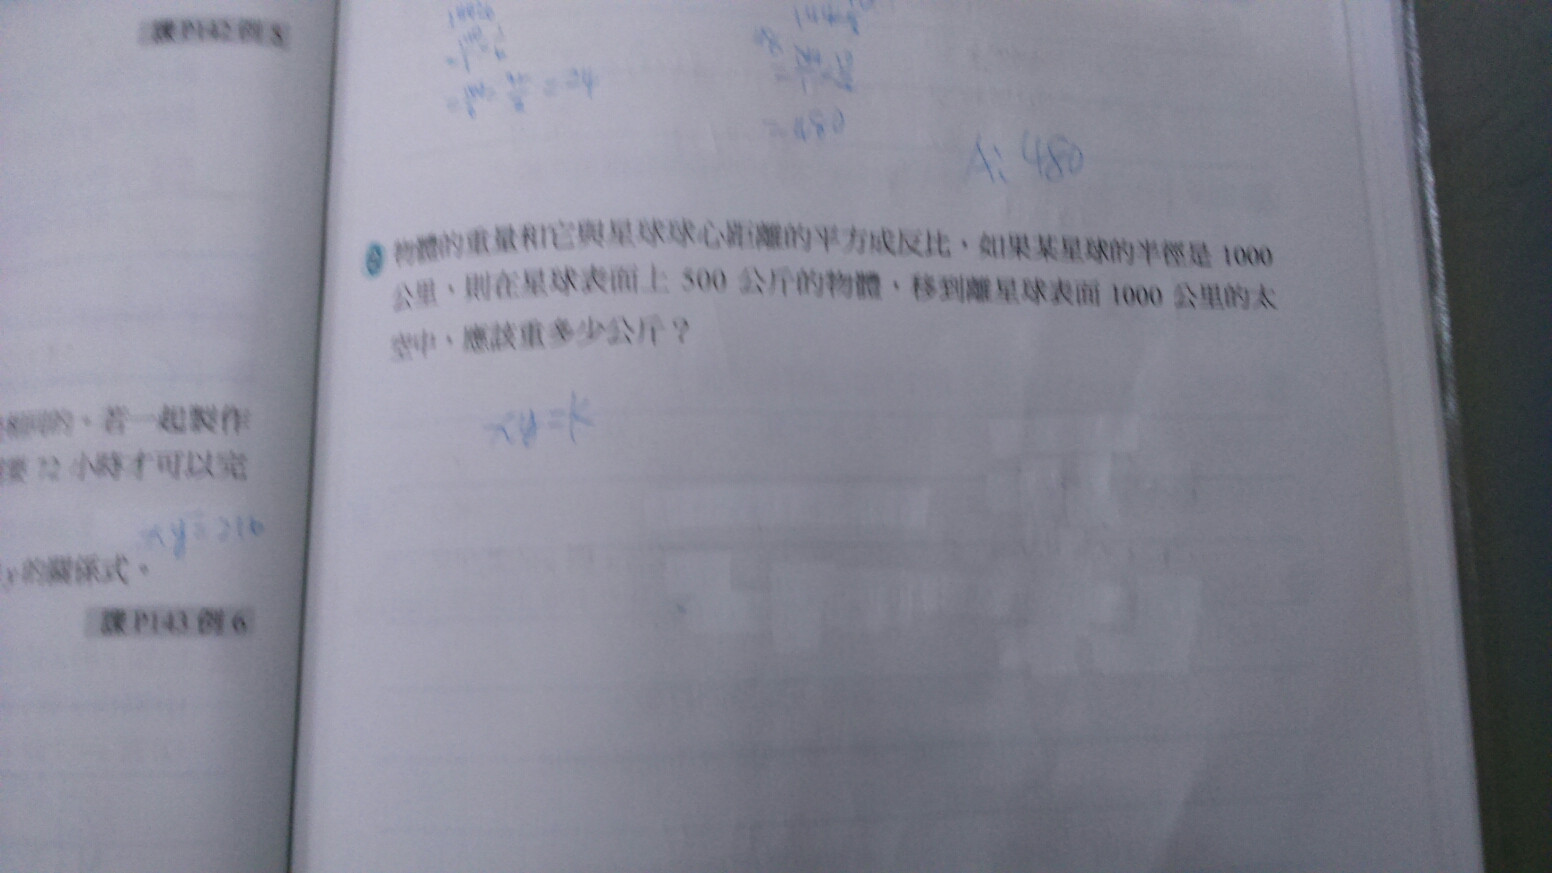 課P142例5
=24
=480
A: 480
物體的重量和它與星球球心距離的平方成反比，如果某星球的半徑是 1000
公里，則在星球表面上 500 公斤的物體，移到離星球表面 1000 公里的太
空中，應該重多少公斤？
xy=k
相同的，若一起製作
要 72 小時才可以完
xy=216
y的關係式。
課P143例6